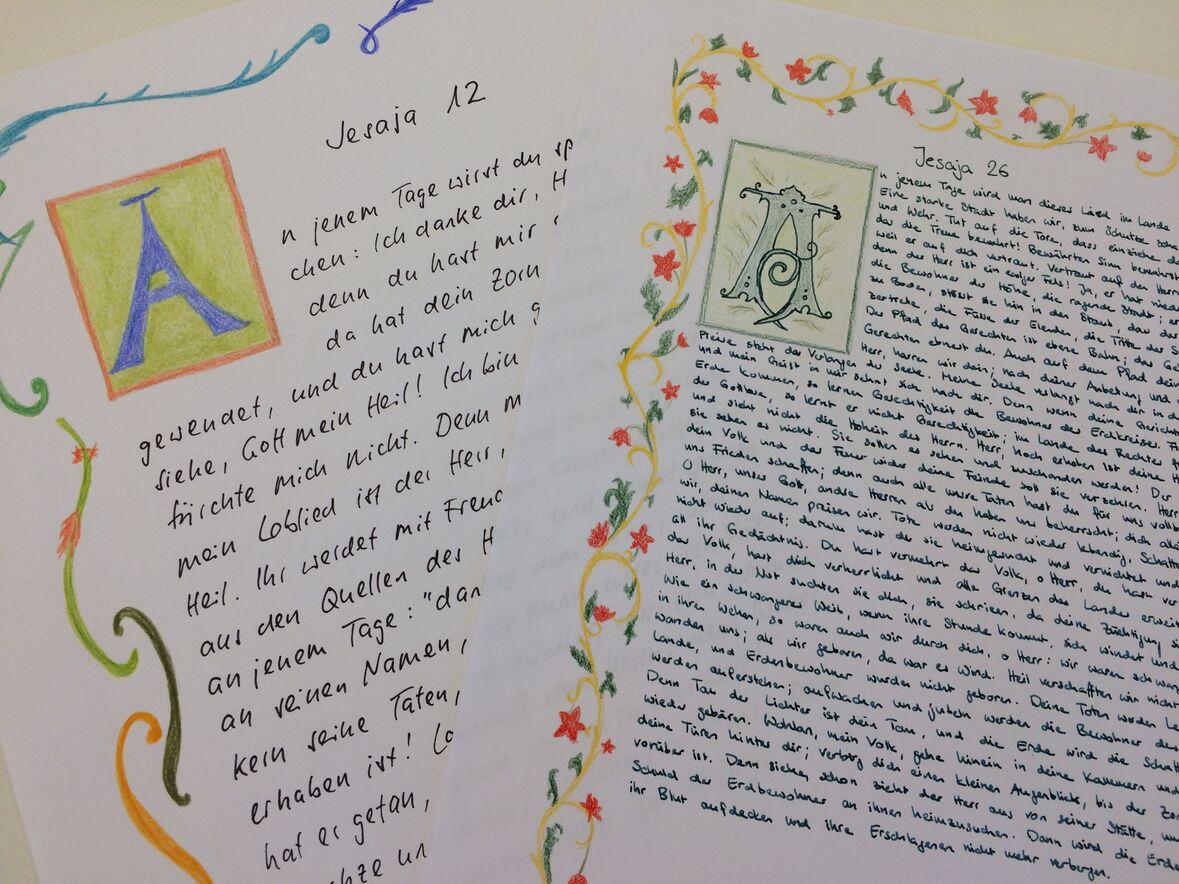 Jesaja 12
A
n jenem Tage wirst du sp
chen: Ich danke dir, H
denn du hast mir
da hat dein Zorn
gewendet, und du hast mich g
siehe, Gott mein Heil! Ich bin
fürchte mich nicht. Denn m
mein Loblied ist der Herr,
Heil. Ihr werdet mit Freud
aus den Quellen des H
an jenem Tage: "dan
an seinen Namen,
kern seine Taten,
erhaben ist! Lo
hat er getan,
chze un
Jesaja 26
A
n jenem Tage wird man dieses Lied im Lande
Eine starke Stadt haben wir, zum Schutze
und Wehr. Tut auf die Tore, dass einziehe
das die Treue bewahrt! Bewährten Sinn bewahrst
weil er auf dich vertraut. Vertraut auf den Herrn
denn der Herr ist ein ewiger Fels! Ja, er hat nieder
die Bewohner der Höhe, die ragende Stadt; er
zu Boden, stösst sie hin in den Staub, das der
zertrete, die Füsse der Elenden, die Tritte der S
Der Pfad des Gerechten ist ebene Bahn; das Ge
Gerechten ebnest du. Auch auf dem Pfad dein
Herr, harren wir dein; nach deiner Anbetung und
Preise steht das Verlangen der Seele. Meine Seele verlangt nach dir in der
und mein Geist in mir sehnt sich nach dir. Denn wenn deine Gericht
Erde kommen, so lernen Gerechtigkeit die Bewohner des Erdkreises.
der Gottlose, so lernt er nicht Gerechtigkeit; im Lande des Rechtes
und sieht nicht die Hoheit des Herrn. Herr, hoch erhoben ist deine H
sie sehen es nicht. Sie sollen es sehen und zuschanden werden! Der
dein Volk und das Feuer wider deine Feinde soll sie verzehren. Herr
uns Frieden schaffen; denn auch alle unsre Taten hast du für uns vollb
O Herr, unser Gott, andre Herren als du haben uns beherrscht; dich
wir, deinen Namen preisen wir. Tote werden nicht wieder lebendig, Schatt
nicht wieder auf; darum hast du sie heimgesucht und vernichtet und
all ihr Gedächtnis. Du hast vermehrt das Volk, o Herr, du hast ver
das Volk, hast dich verherrlicht und alle Grenzen des Landes erweit
Herr, in der Not suchten sie dich, sie schrieen, da deine Züchtigung si
Wie ein schwangeres Weib, wenn ihre Stunde kommt, sich windet und
in ihren Wehen, so waren auch wir durch dich, o Herr: wir waren schwang
wanden uns; als wir geboren, da war es Wind. Heil verschafften wir nicht
Lande, und Erdenbewohner wurden nicht geboren. Deine Toten werden Le
werden auferstehen; aufwachen und jubeln werden die Bewohner des
Denn Tau der Lichter ist dein Tau, und die Erde wird die Schatt
wieder gebären. Wohlan, mein Volk, gehe hinein in deine Kammern und
deine Türen hinter dir; verbirg dich einen kleinen Augenblick, bis der Zor
vorüber ist. Denn siehe, schon zieht der Herr aus von seiner Stätte, um
Schuld der Erdbewohner an ihnen heimzusuchen. Dann wird die Erde
ihr Blut aufdecken und ihre Erschlagenen nicht mehr verbergen.